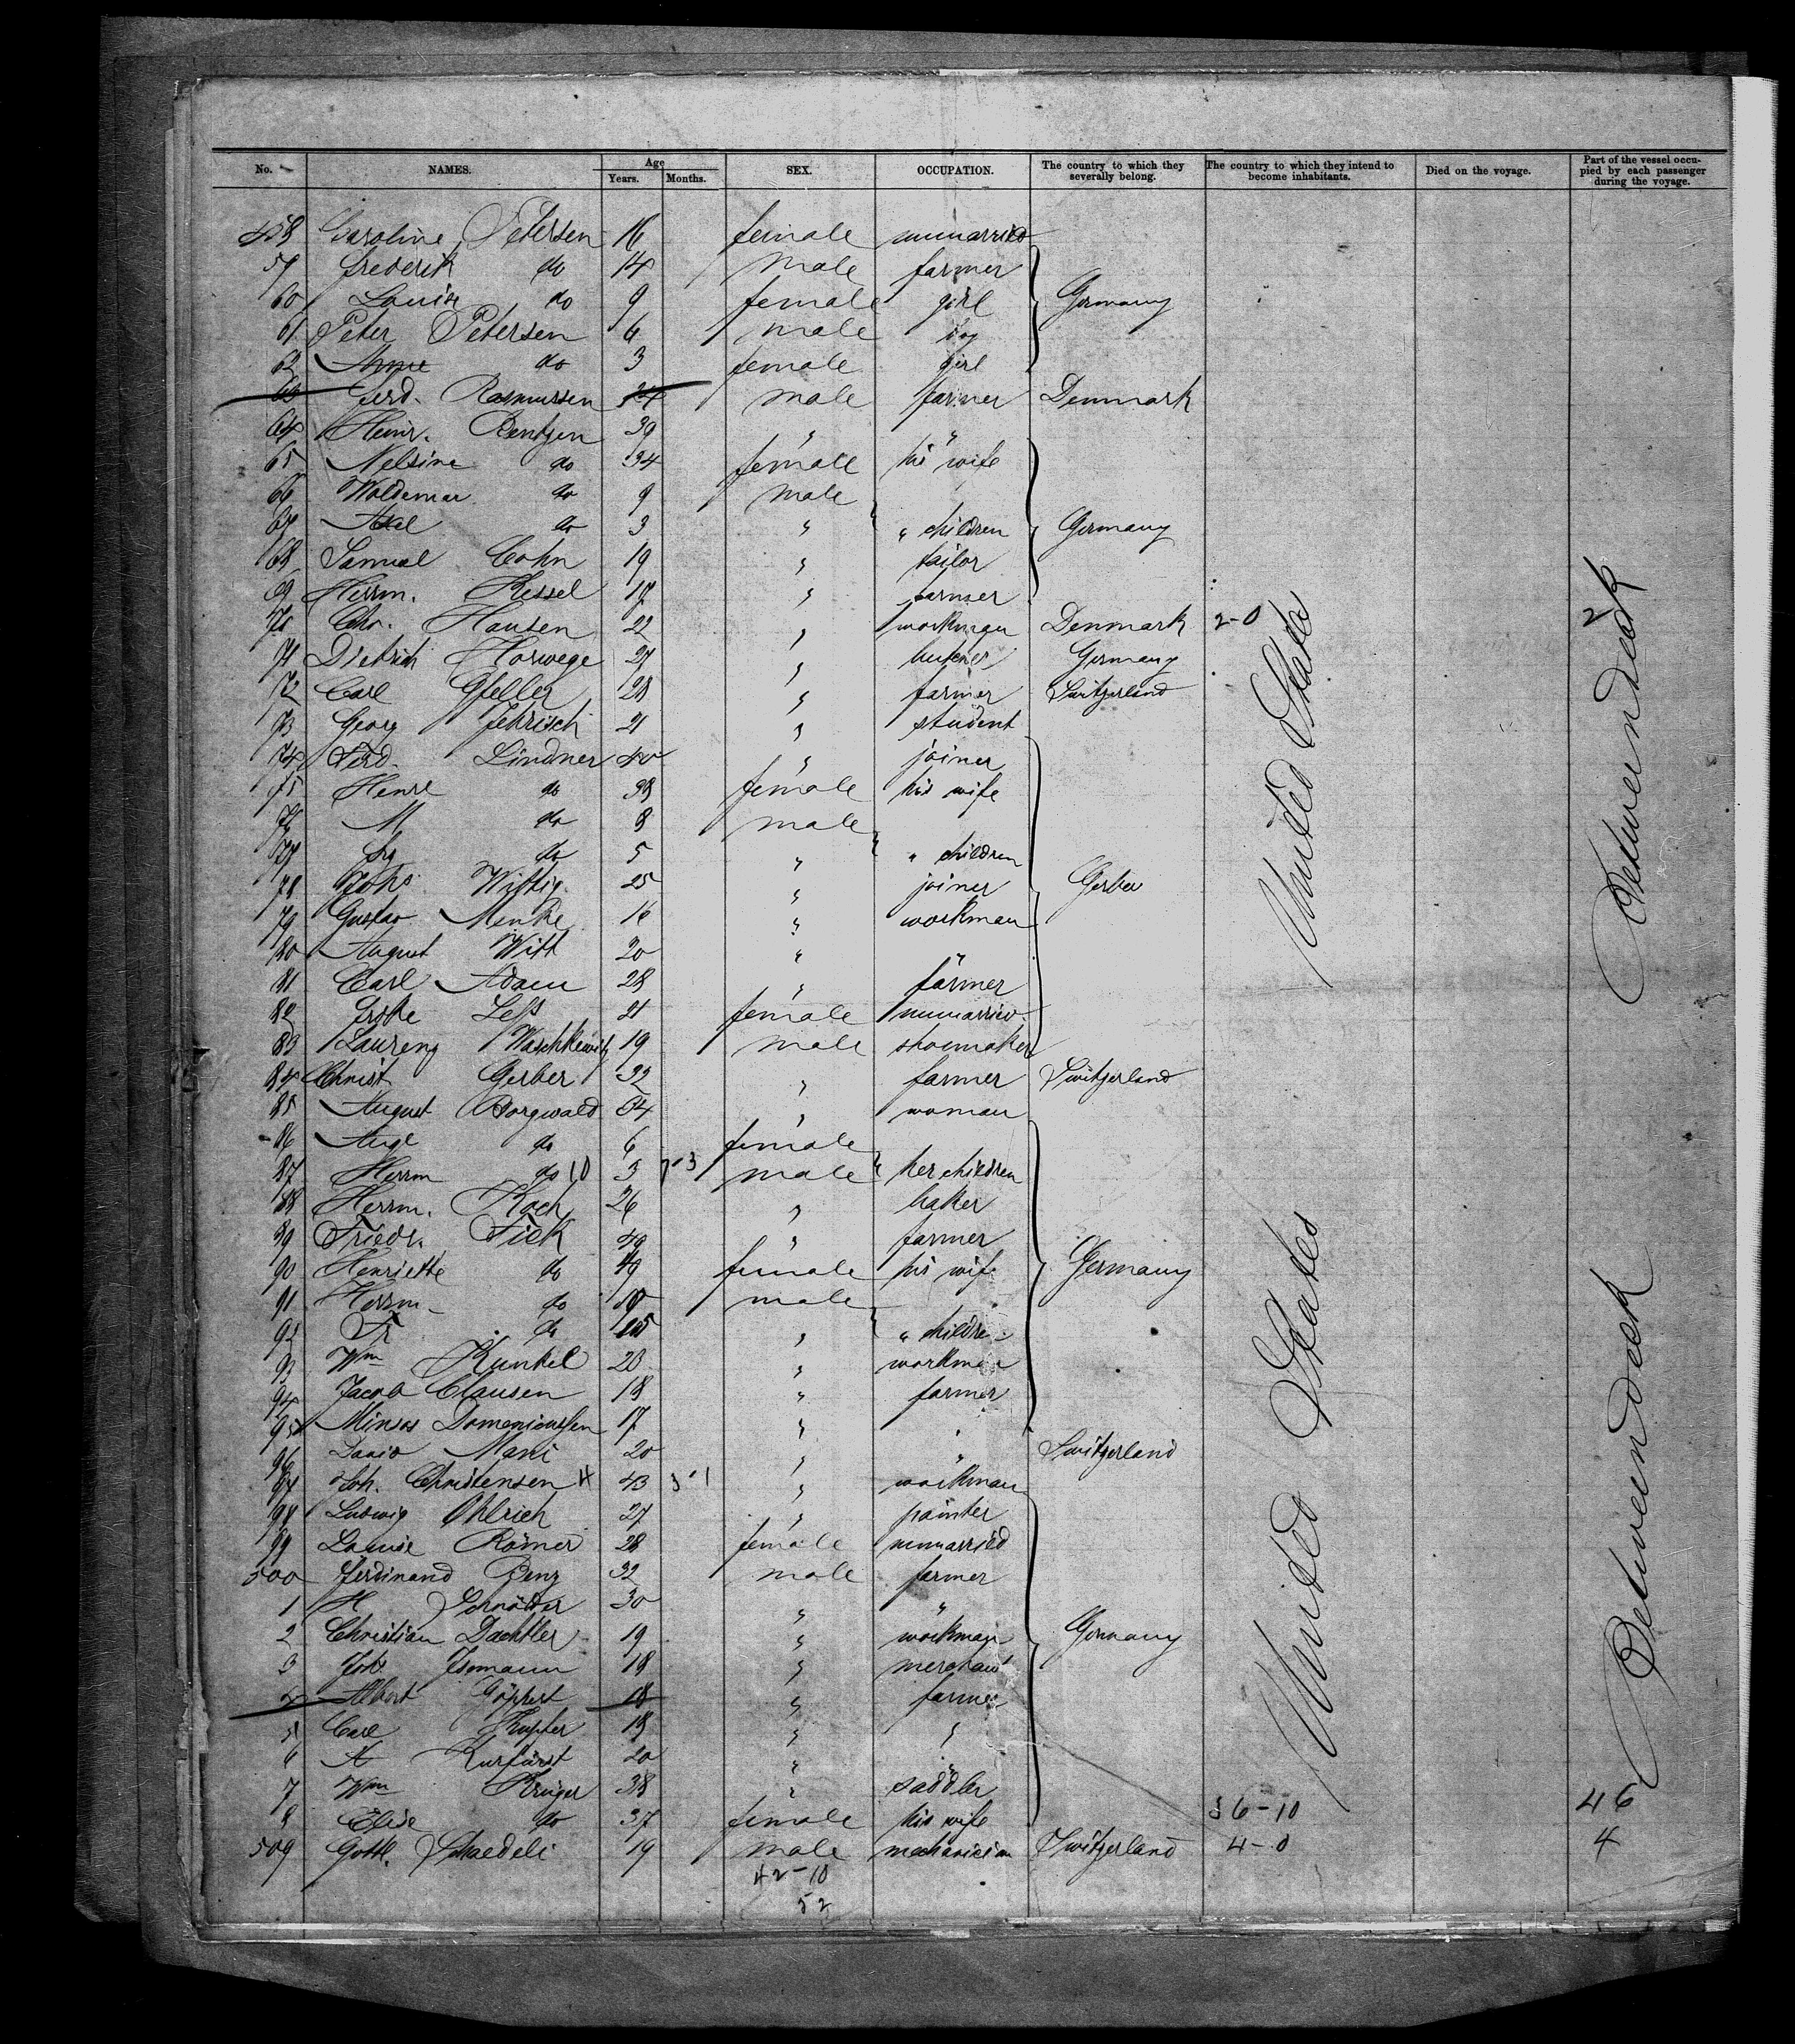 No. NAMES. Age Years. Months. SEX. OCCUPATION. The country to which they severally belong. The country to which they intend to become inhabitants. Died on the voyage. Part of the vessel occupied by each passenger during the voyage.
458 Caroline Petersen 16 female unmarried
59 Frederik do 14 male farmer
60 Louise do 9 female girl Germany
61 Peter Petersen 6 male boy
62 Anne do 3 female girl
63 Ferd. Rasmussen 24 male farmer Denmark
64 Heinr. Bentzen 39 " "
65 Nelsine do 34 female his wife
66 Woldemar do 9 male
67 Axel do 3 " " children Germany
68 Samuel Cohn 19 " tailor
69 Herrm. Kessel 17 " farmer
70 Chr. Hansen 22 " workman Denmark 2-0 2
71 Dietrich Horwege 27 " Germany
72 Carl Gfeller 28 " farmer Switzerland
73 Georg 21 " student
74 Ferd. Lindner 40 " joiner
75 Henrl do 38 female his wife
76 M do 8 male
77 do 5 " " children
78 Johs. Wittig 25 " joiner
79 Gustav Menke 16 " workman
80 August Witt 20 " "
81 Carl Adam 28 " farmer
82 21 female unmarried
83 Laurenz Waschkewitz 19 male shoemaker
84 Christ Gerber 32 " farmer Switzerland
85 August Borgwald 34 " woman
86 Auge do 6 female
87 Herrm do 10 3 male her children
88 Herrm. Koch 26 " baker
89 Friedr. Fick 49 " farmer
90 Henriette do 49 female his wife Germany
91 Herrm do male
92 Fr do " " children
93 Wm Kunkel 20 " workman
94 Jacob Clausen 18 " farmer
95 17 " "
96 David Mani 20 " " Switzerland
97 Joh. Christensen 43 " workman
98 Ludwig Ohlrich 27 " painter
99 Louise Römer 28 female unmarried
500 Ferdinand Benz 32 male farmer
1 H 30 " "
2 Christian Dachtler 19 " workman Germany
3 Joh. 18 " merchant
4 Albert Göppert 18 " farmer
5 Carl Kupfer 18 " "
6 A Kurfürst 20 " "
7 Wm Krüger 38 " saddler
8 Elise do 37 female his wife 36-10 46
509 Gottl. Schaedeli 19 male mechanician Switzerland 4-0 4
42-10
52
United States
United States
Between deck
Between deck